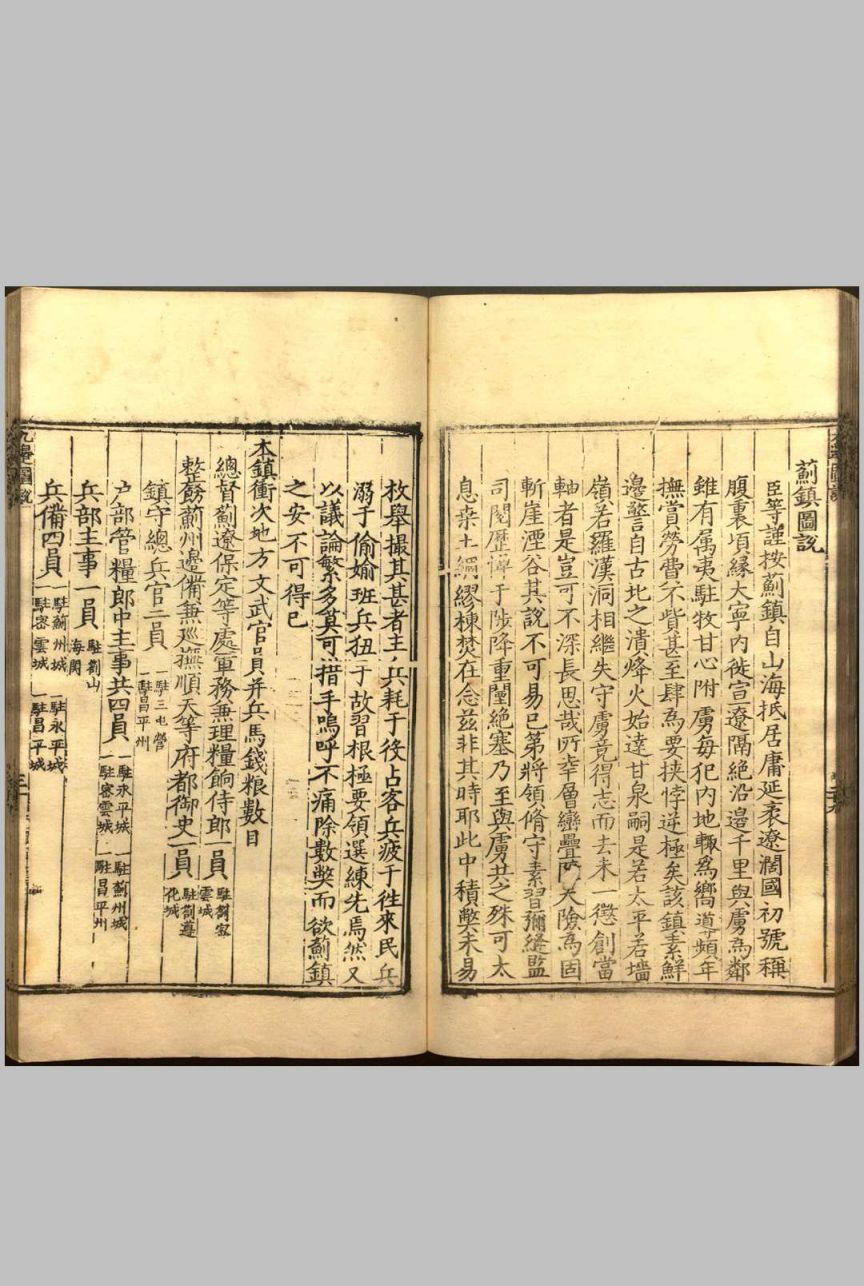 薊鎮圖說
臣等謹按薊鎮自山海抵居庸延袤遼濶國初號稱
腹裏項緣大寧內徙宣遼隔絶沿邉千里與虜為鄰
雖有属夷駐牧甘心附虜每犯內地輙為嚮導頻年
撫賞勞費不貲甚至肆為要挾悖逆極矣該鎮素鮮
邉警自古北之潰烽火始達甘泉嗣是若太平若墻
嶺若羅漢洞相繼失守虜竟得志而去未一懲創當
軸者是豈可不深長思哉所幸層巒疊 天險為固
斬崖湮谷其說不可易已第將領脩守素習彌縫監
司閱歷憚于陟降重闉絶塞乃至與虜共之殊可太
息桒土綢繆棟焚在念兹非其時耶此中積獘未易
枚舉撮其甚者主兵耗于役占客兵疲于徃來民兵
溺于偷媮班兵狃于故習根極要領選練先焉然又
以議論繁多莫可措手嗚呼不痛除數獘而欲薊鎮
之安不可得已
本鎮衝次地方文武官員并兵馬錢粮數目
總督薊遼保定等處軍務兼理糧餉侍郎一員駐劄密雲城
整飭薊州邉備兼巡撫順天等府都御史一員駐劄遵化城
鎮守總兵官二員一駐三屯營一駐昌平州
户部管糧郎中主事共四員一駐永平城一駐密雲城一駐薊州城一駐昌平州
兵部主事一員駐劄山海関
兵備四員一駐薊州城一駐密雲城一駐永平城一駐昌平城
九邉圖說